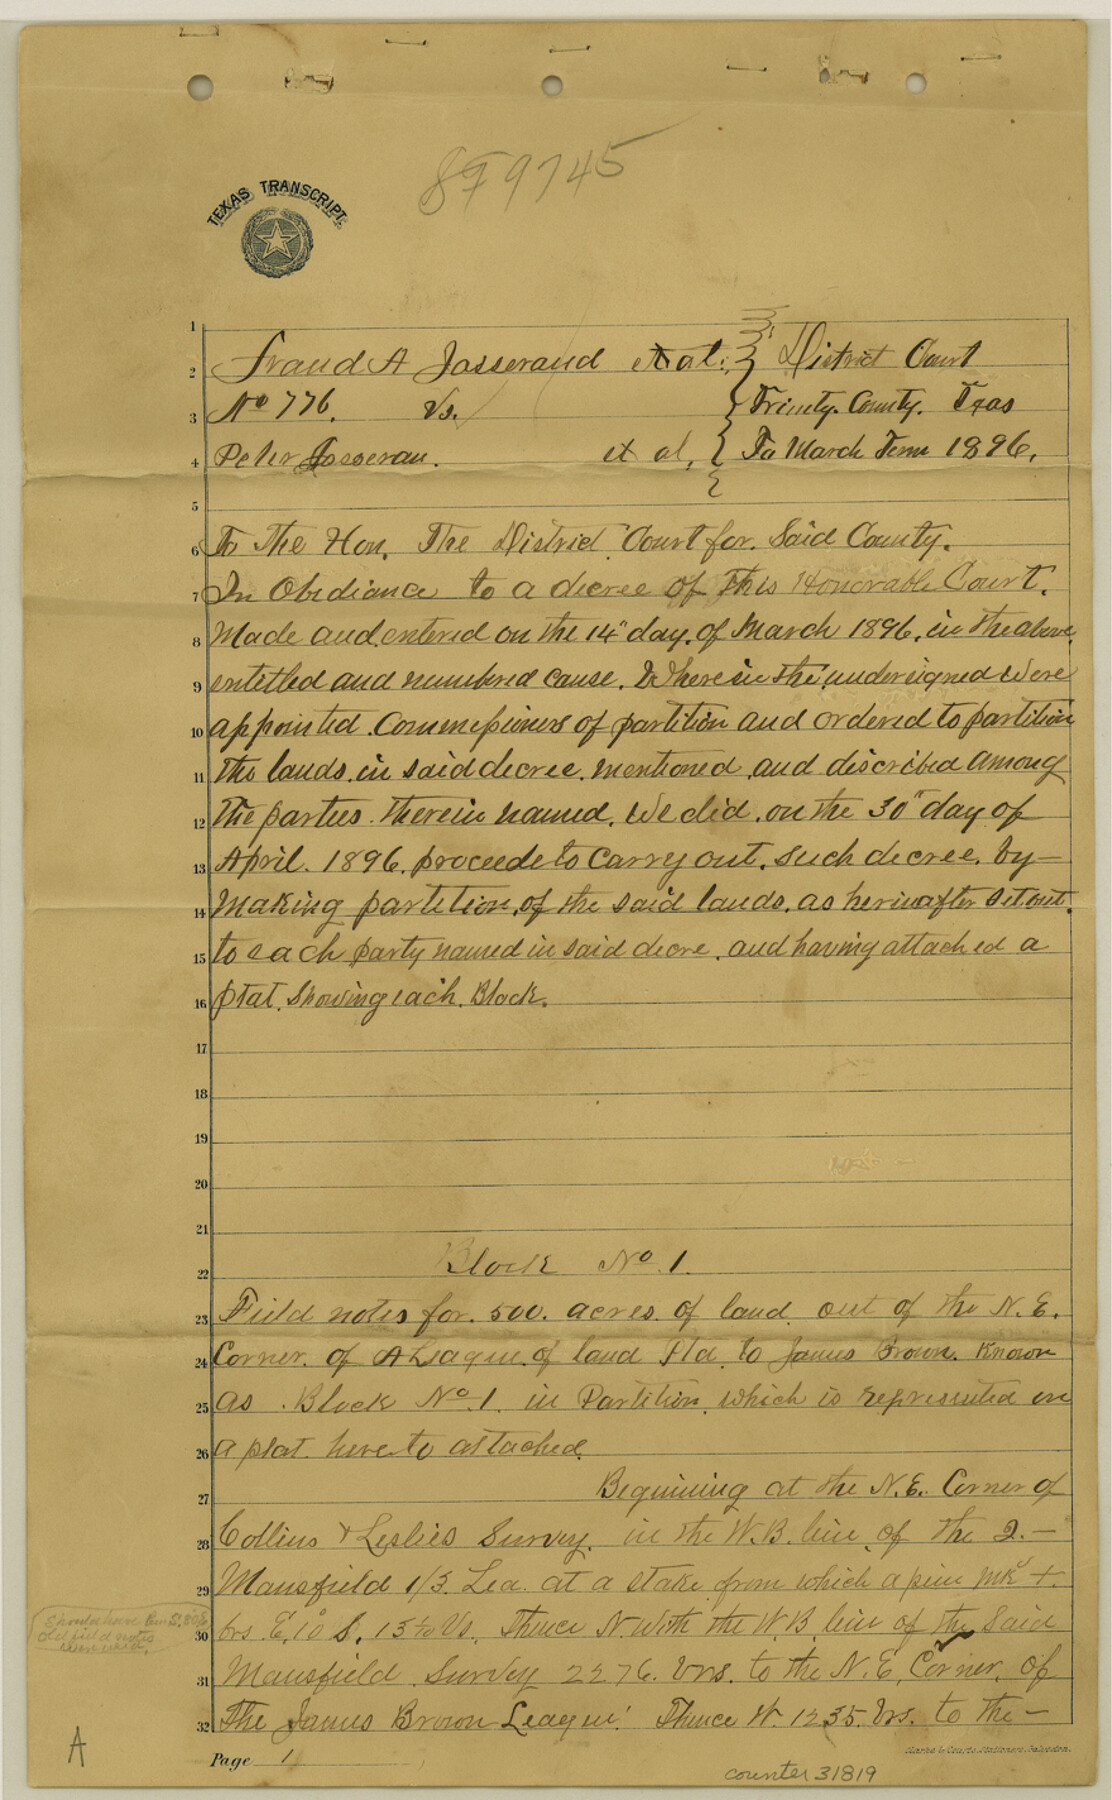 859745
TEXAS TRANSCRIPT.
1
2 Fraud A Josseraud et al. } District Court
3 No 776. Vs. } Trinity. County. Texas
4 Peter Josserau. et al, } To March Term 1896.
5
6 To The Hon. The District Court for. Said County.
7 In Obediance to a decree of This Honorable Court.
8 Made and entered on the 14" day. of March 1896, in the above
9 entitled and numbered cause. Wherein the undersigned Were
10 appointed. Commissioners of partition and ordered to partition
11 the lands. in said decree. mentioned and discribed among
12 The parties. therein named. We did. on the 30" day of
13 April. 1896. proceede to Carry out. such decree. by—
14 Making partition, of the said lands. as herinafter Set out.
15 to each party named in said decre. and having attached a
16 plat. Showing each. Block.
17
18
19
20
21
22 Block No. 1.
23 Field notes for. 500. acres. of land. out of the N. E.
24 Corner. of A League. of land Ptd. to James Brown. Known
25 as. Block No. 1. in Partition. which is represented on
26 a plat. here to attached.
27 Beginning at the N. E. Corner of
28 Collins & Leslies Survey. in the W. B. line of the J.—
29 Mansfield 1/3. Lea. at a stake from which a pine mk +.
30 brs. E. 10° S. 15 1/10 Vs. Thence N. With the W. B. line of the Said
31 Mansfield Survey 2276. Vrs. to the N. E. Corner. of
32 The James Brown League. Thence W. 1235. Vrs. to the—
Should have
Old field notes
A
Page 1
Clarke & Courts, Stationers, Galveston.
counter 31819